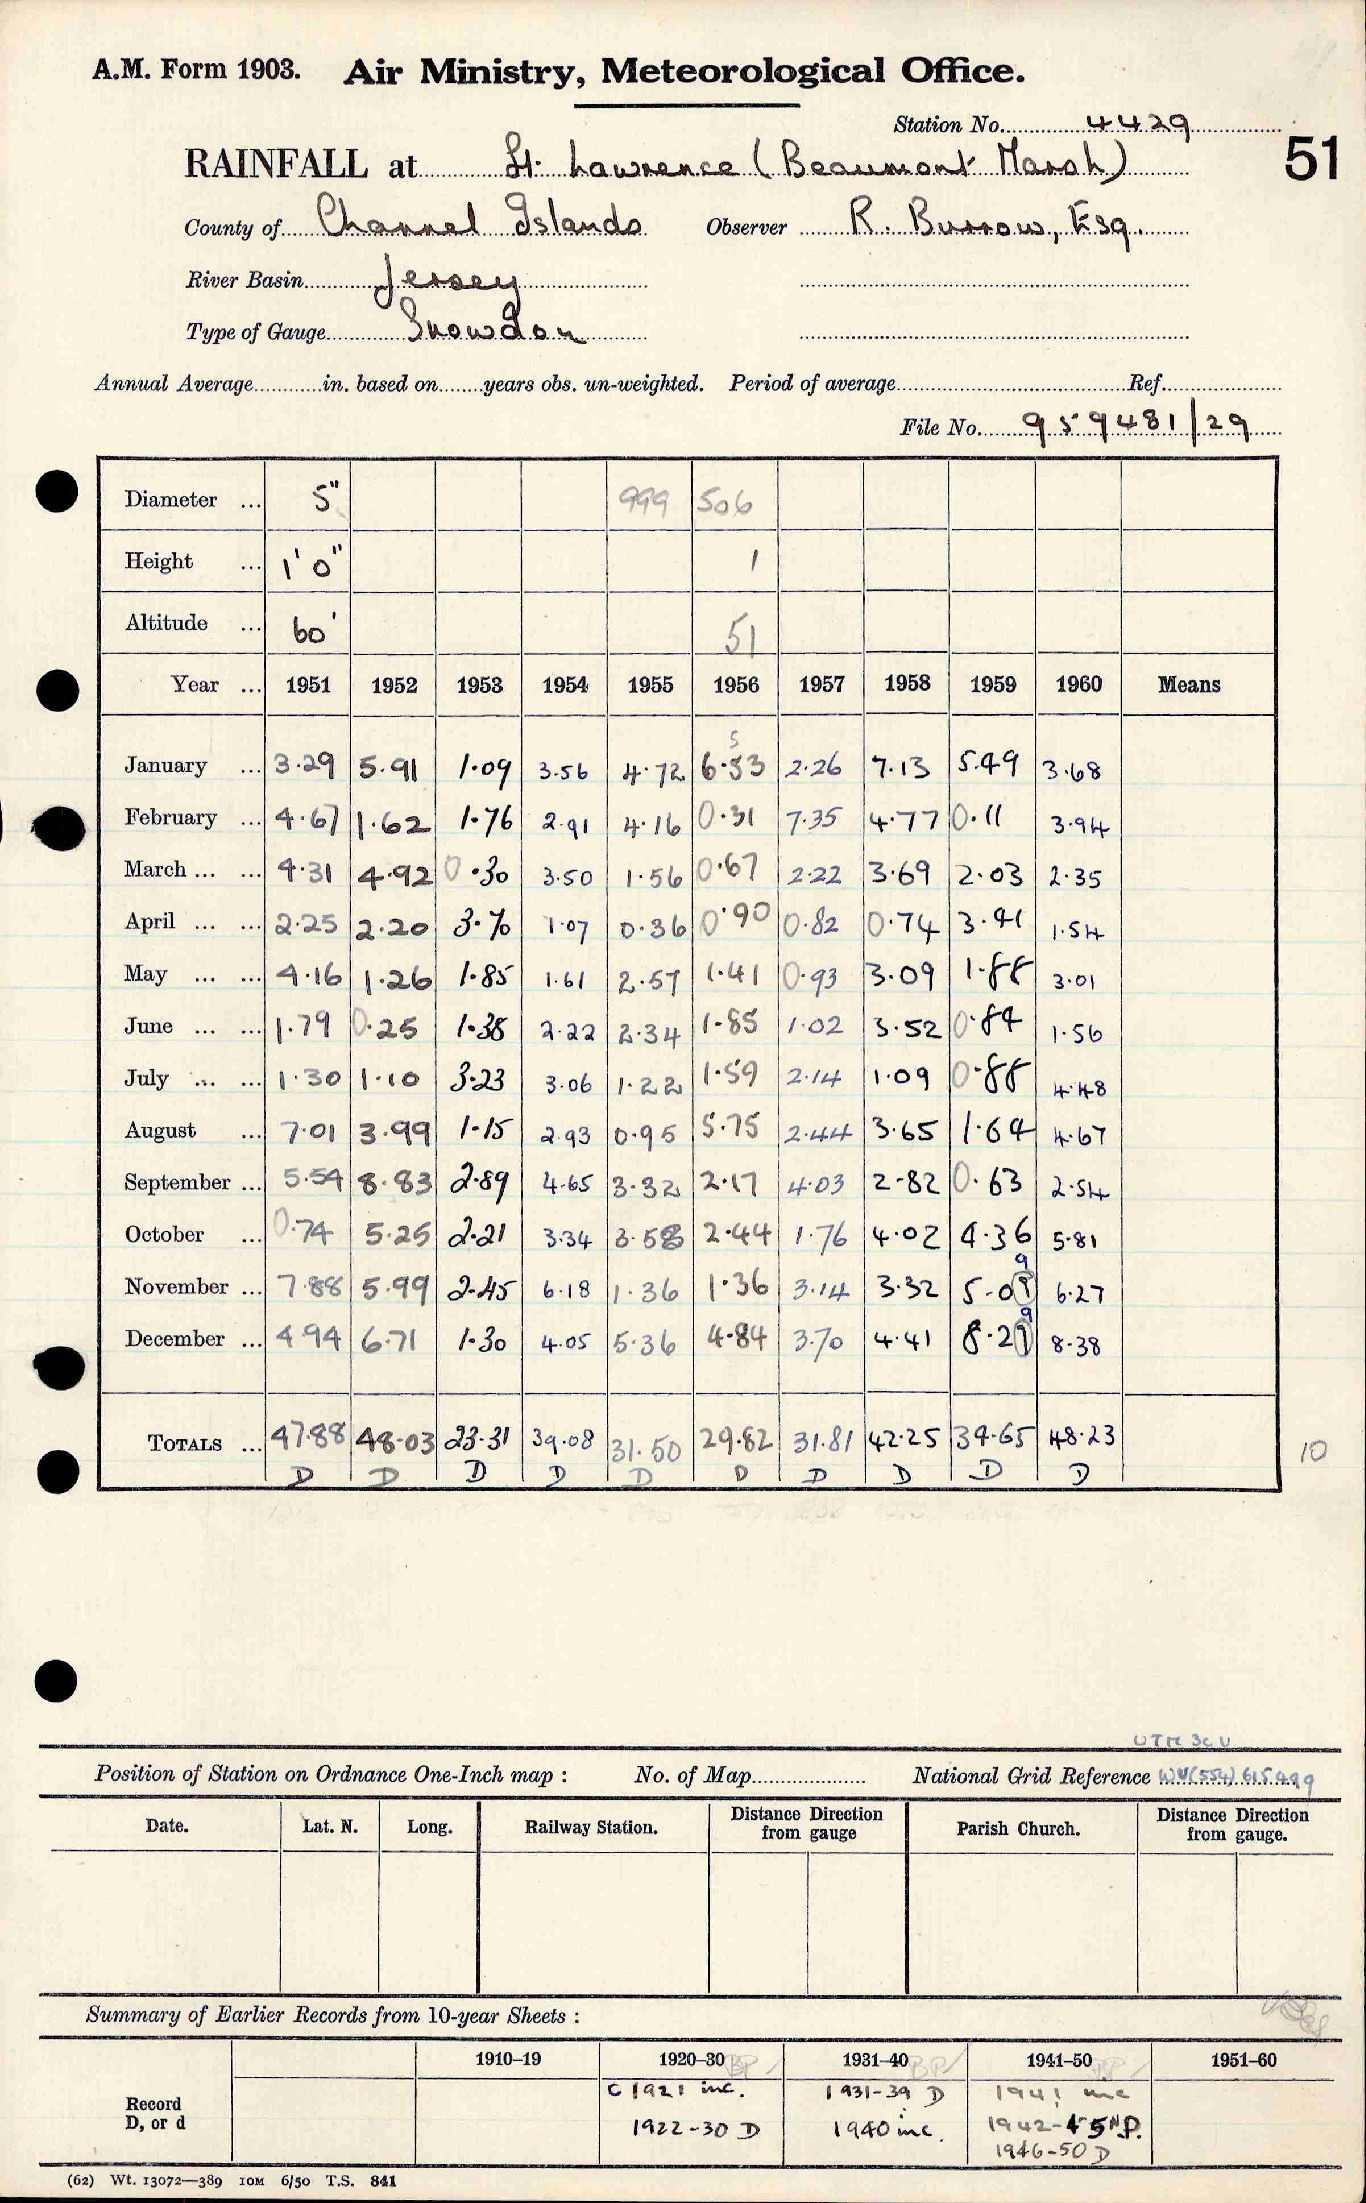 A.M. Form 1903. Air Ministry, Meteorological Office.
Station No. 4429
RAINFALL at St. Lawrence (Beaumont Marsh) 51
County of Channel Islands Observer R. Burrow, Esq.
River Basin Jersey
Type of Gauge Snowdon
Annual Average in. based on years obs. un-weighted. Period of average Ref.
File No. 959481/29
Diameter ... 5" 999 506
Height ... 1' 0" 1
Altitude ... 60' 51
Year ... 1951 1952 1953 1954 1955 1956 1957 1958 1959 1960 Means
5
January ... 3.29 5.91 1.09 3.56 4.72 6.53 2.26 7.13 5.49 3.68
February ... 4.67 1.62 1.76 2.91 4.16 0.31 7.35 4.77 0.11 3.94
March ... ... 4.31 4.92 0.30 3.50 1.56 0.67 2.22 3.69 2.03 2.35
April ... ... 2.25 2.20 3.70 1.07 0.36 0.90 0.82 0.74 3.41 1.54
May ... ... 4.16 1.26 1.85 1.61 2.57 1.41 0.93 3.09 1.88 3.01
June ... ... 1.79 0.25 1.38 2.22 2.34 1.85 1.02 3.52 0.84 1.56
July ... ... 1.30 1.10 3.23 3.06 1.22 1.59 2.14 1.09 0.88 4.48
August ... 7.01 3.99 1.15 2.93 0.95 5.75 2.44 3.65 1.64 4.67
September ... 5.54 8.83 2.89 4.65 3.32 2.17 4.03 2.82 0.63 2.54
October ... 0.74 5.25 2.21 3.34 3.58 2.44 1.76 4.02 4.36 5.81
9
November ... 7.88 5.99 2.45 6.18 1.36 1.36 3.14 3.32 5.09 6.27
9
December ... 4.94 6.71 1.30 4.05 5.36 4.84 3.70 4.41 8.29 8.38
TOTALS ... 47.88 48.03 23.31 39.08 31.50 29.82 31.81 42.25 34.65 48.23 10
D D D D D D D D D D
UTM 30U
Position of Station on Ordnance One-Inch map : No. of Map National Grid Reference WV(554) 615499
Date. Lat. N. Long. Railway Station. Distance Direction from gauge Parish Church. Distance Direction from gauge.
Summary of Earlier Records from 10-year Sheets :
1910–19 1920–30 BP/ 1931–40 BP/ 1941–50 BP/ 1951–60
Record D, or d
C 1921 inc. 1931-39 D 1941 inc
1922-30 D 1940 inc. 1942-45 N.P.
1946-50 D
(62) Wt. 13072—389 10M 6/50 T.S. 841